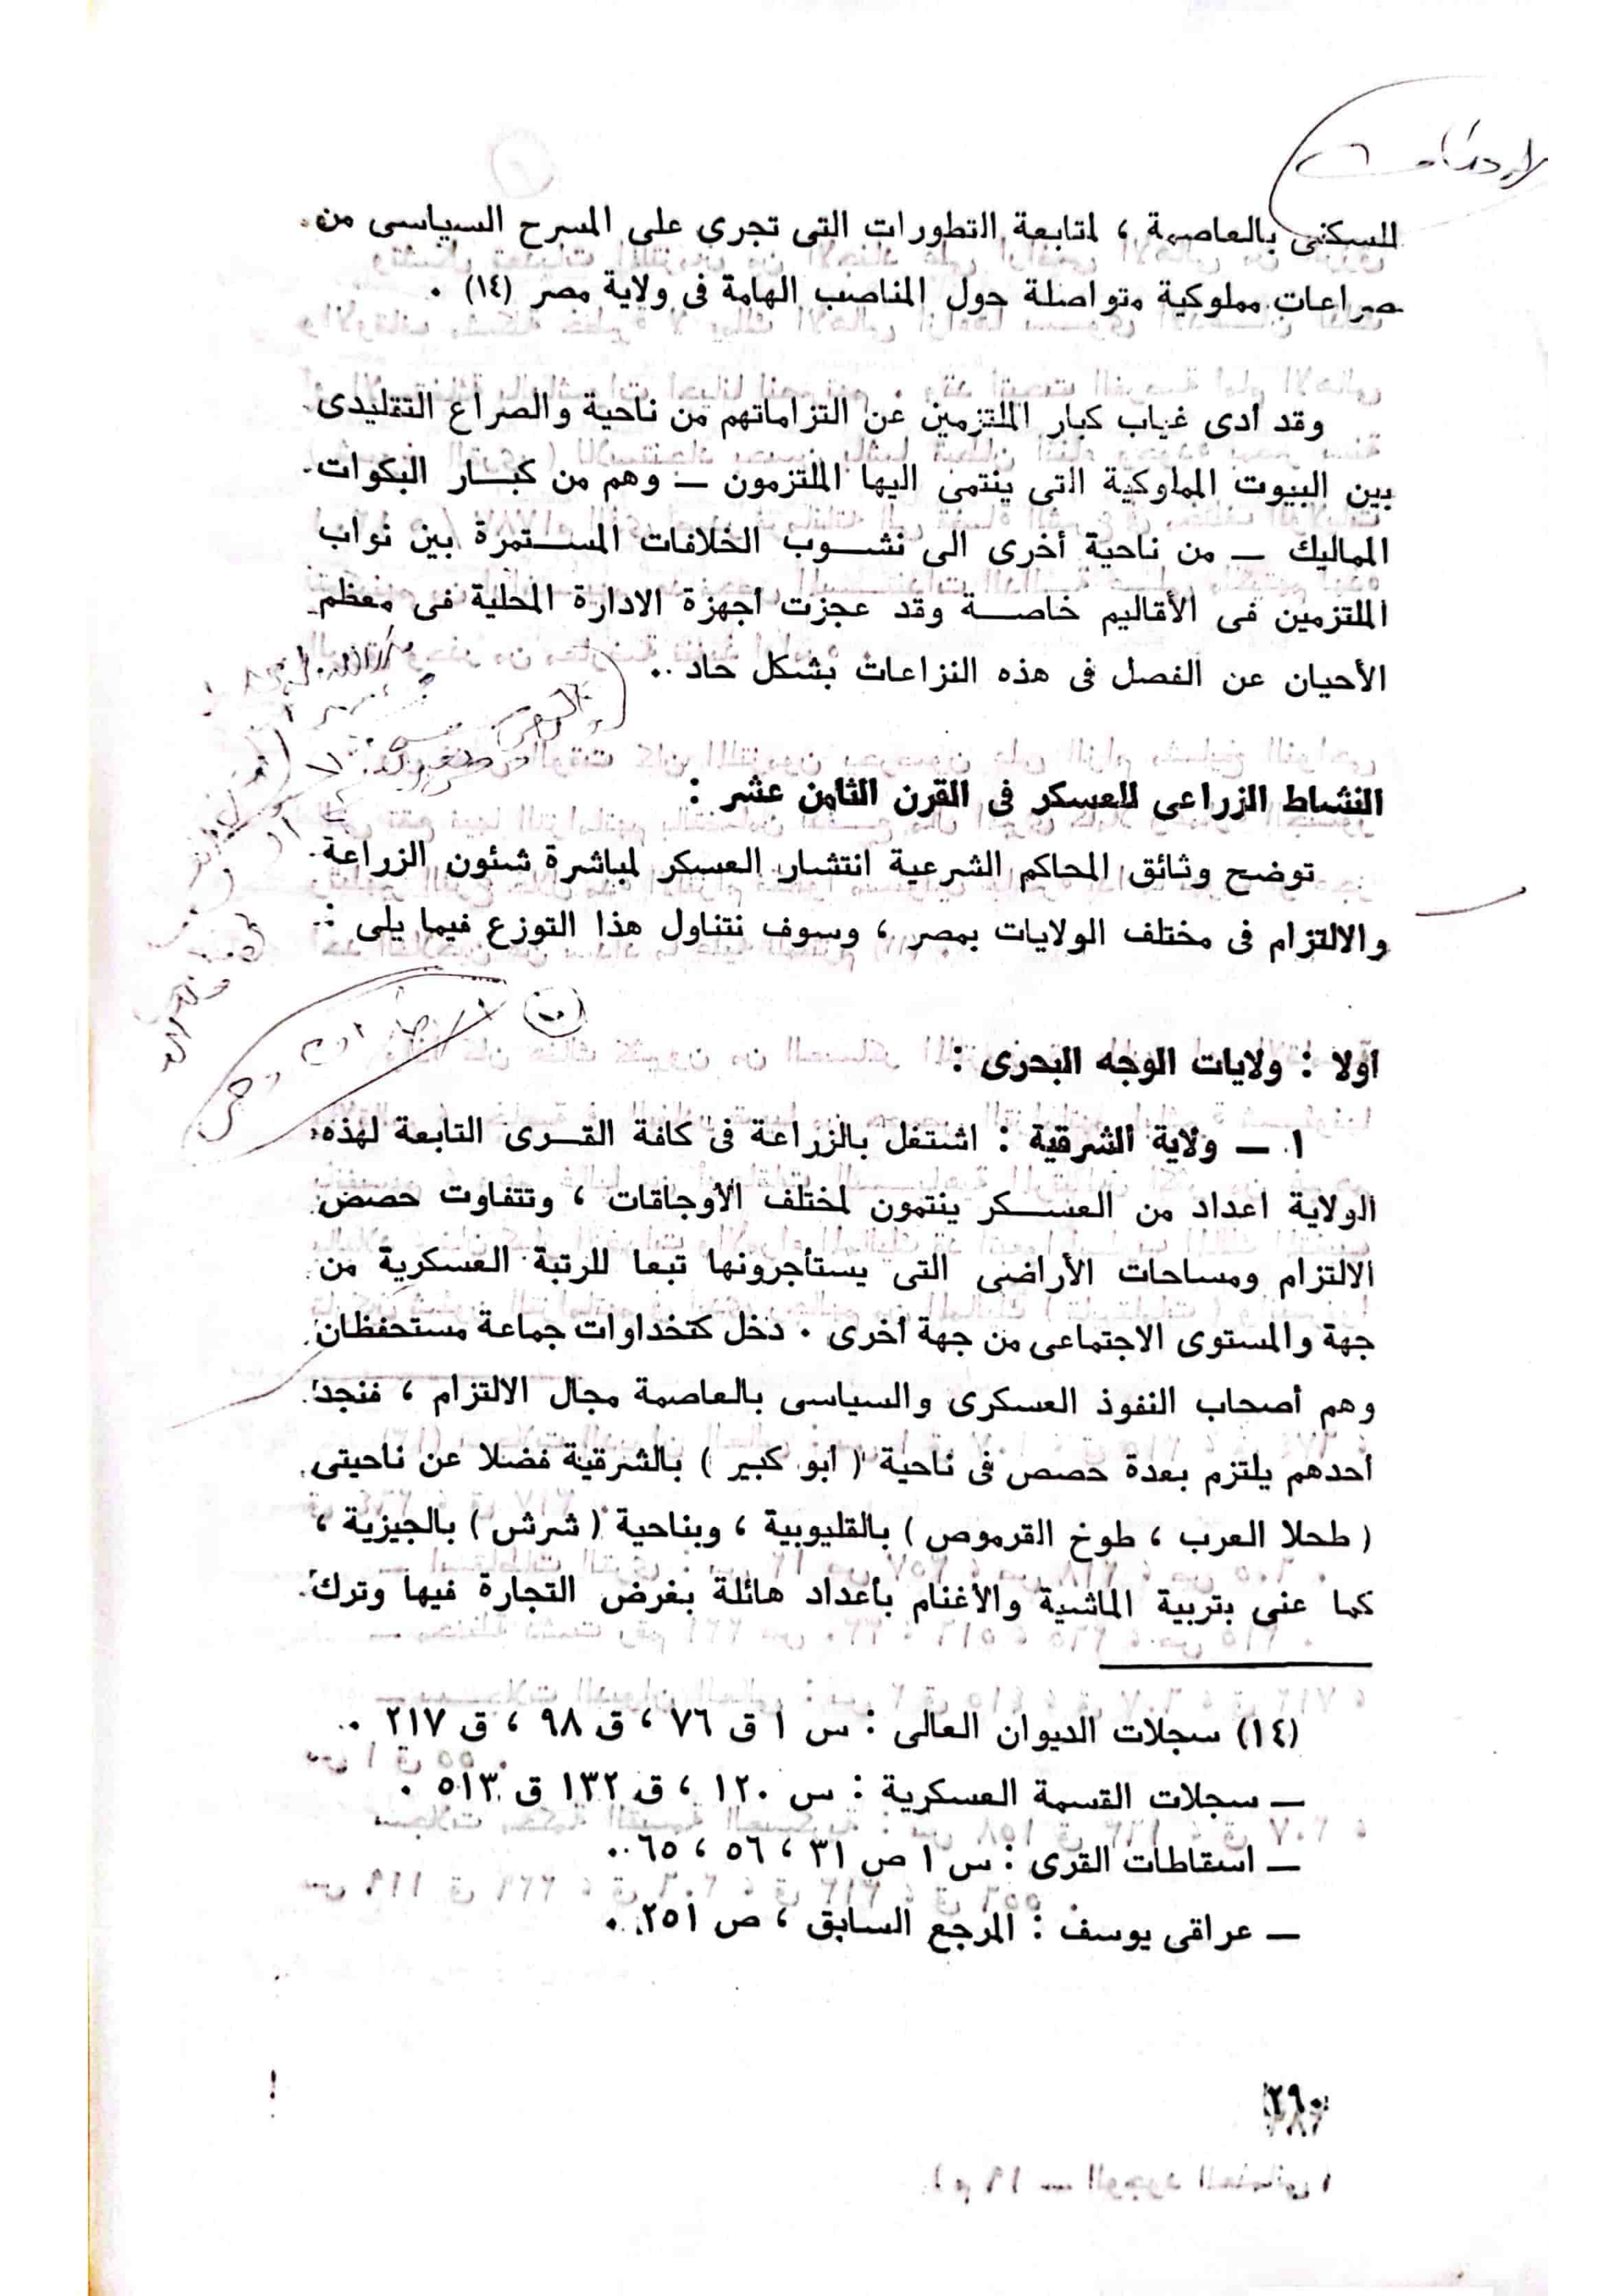 للسكنى بالعاصمة ، لمتابعة التطورات التى تجرى على المسرح السياسى من
صراعات مملوكية متواصلة حول المناصب الهامة فى ولاية مصر (١٤) ٠
وقد أدى غياب كبار الملتزمين عن التزاماتهم من ناحية والصراع التقليدى
بين البيوت المملوكية التى ينتمى اليها الملتزمون — وهم من كبار البكوات
المماليك — من ناحية أخرى الى نشوب الخلافات المستمرة بين نواب
الملتزمين فى الأقاليم خاصة وقد عجزت أجهزة الادارة المحلية فى معظم
الأحيان عن الفصل فى هذه النزاعات بشكل حاد ٠
النشاط الزراعى للعسكر فى القرن الثامن عشر :
توضح وثائق المحاكم الشرعية انتشار العسكر لمباشرة شئون الزراعة
والالتزام فى مختلف الولايات بمصر ، وسوف نتناول هذا التوزع فيما يلى :
اولا : ولايات الوجه البحرى :
١ — ولاية الشرقية : اشتغل بالزراعة فى كافة القرى التابعة لهذه
الولاية اعداد من العسكر ينتمون لمختلف الأوجاقات ، وتتفاوت حصص
الالتزام ومساحات الأراضى التى يستأجرونها تبعا للرتبة العسكرية من
جهة والمستوى الاجتماعى من جهة أخرى ٠ دخل كتخداوات جماعة مستحفظان
وهم أصحاب النفوذ العسكرى والسياسى بالعاصمة مجال الالتزام ، فنجد
أحدهم يلتزم بعدة حصص فى ناحية ( أبو كبير ) بالشرقية فضلا عن ناحيتى
( طحلا العرب ، طوخ القرموص ) بالقليوبية ، وبناحية ( شرش ) بالجيزية ،
كما عنى بتربية الماشية والأغنام بأعداد هائلة بغرض التجارة فيها وترك
(١٤) سجلات الديوان العالى : س ١ ق ٧٦ ، ق ٩٨ ، ق ٢١٧ ٠
— سجلات القسمة العسكرية : س ١٢٠ ، ق ١٣٢ ق ٥١٣ ٠
— اسقاطات القرى : س ١ ص ٣١ ، ٥٦ ، ٦٥ ٠
— عراقى يوسف : المرجع السابق ، ص ٢٥١ ٠
٢٩٠